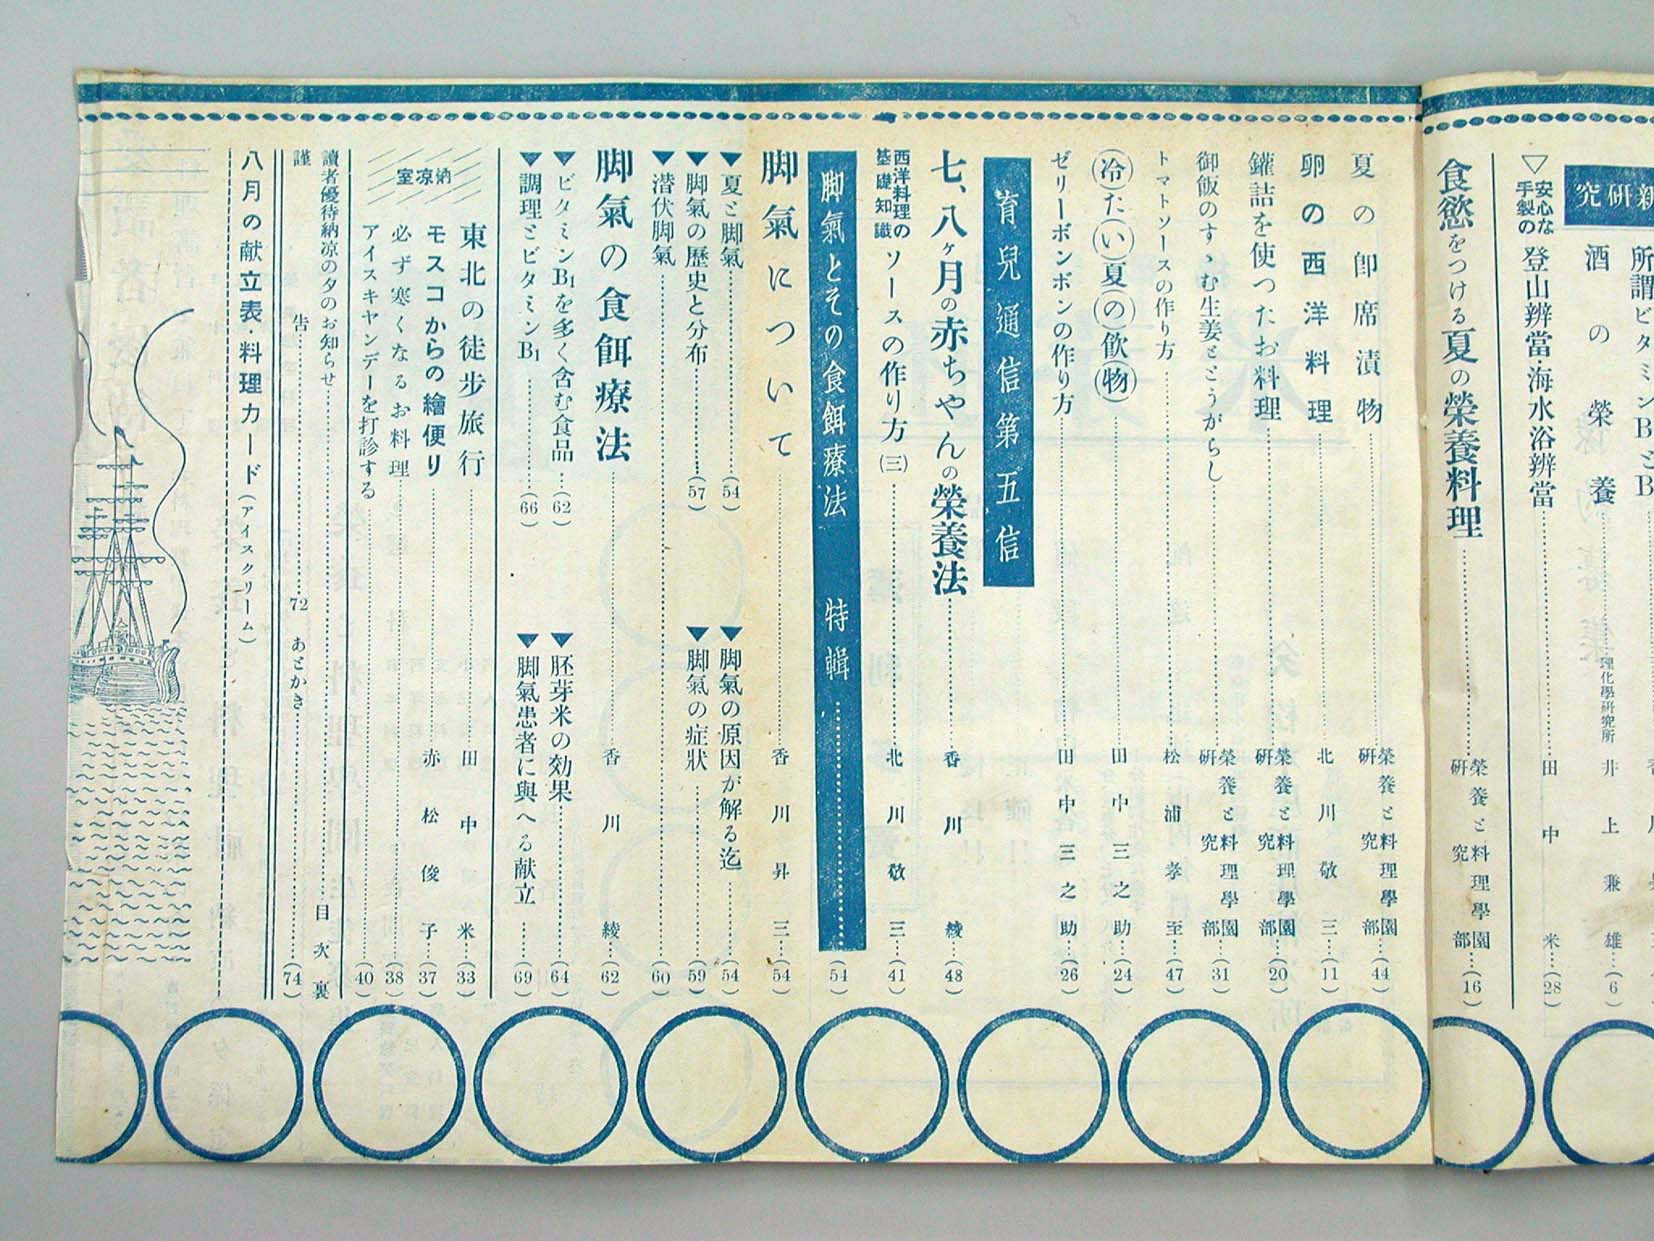 新研究
所謂ビタミンBとB
酒の榮養……理化學硏究所 井上兼雄…(6)
▽安心な手製の 登山辨當海水浴辨當……田中米…(28)
食慾をつける夏の榮養料理……榮養と料理學園硏究部…(16)
夏の卽席漬物……榮養と料理學園硏究部…(44)
卵の西洋料理……北川敬三…(11)
鑵詰を使つたお料理……榮養と料理學園硏究部…(20)
御飯のすゝむ生姜ととうがらし……榮養と料理學園硏究部…(31)
トマトソースの作り方……松浦孝至…(47)
冷たい夏の飮物……田中三之助…(24)
ゼリーボンボンの作り方……田中三之助…(26)
育兒通信第五信
七、八ヶ月の赤ちやんの榮養法……香川綾…(48)
西洋料理の基礎知識 ソースの作り方(三)……北川敬三…(41)
脚氣とその食餌療法 特輯……(54)
脚氣について……香川昇三…(54)
▼夏と脚氣……(54) ▼脚氣の原因が解る迄……(54)
▼脚氣の歷史と分布……(57) ▼脚氣の症狀……(59)
▼潜伏脚氣……(60)
脚氣の食餌療法……香川綾…(62)
▼ビタミンB₁を多く含む食品…(62) ▼胚芽米の効果……(64)
▼調理とビタミンB₁……(66) ▼脚氣患者に與へる献立……(69)
納凉室
東北の徒步旅行……田中米…(33)
モスコからの繪便り……赤松俊子…(37)
必ず寒くなるお料理……(38)
アイスキヤンデーを打診する……(40)
讀者優待納凉の夕のお知らせ……目次裏
謹告……72 あとかき……(74)
八月の献立表・料理カード(アイスクリーム)